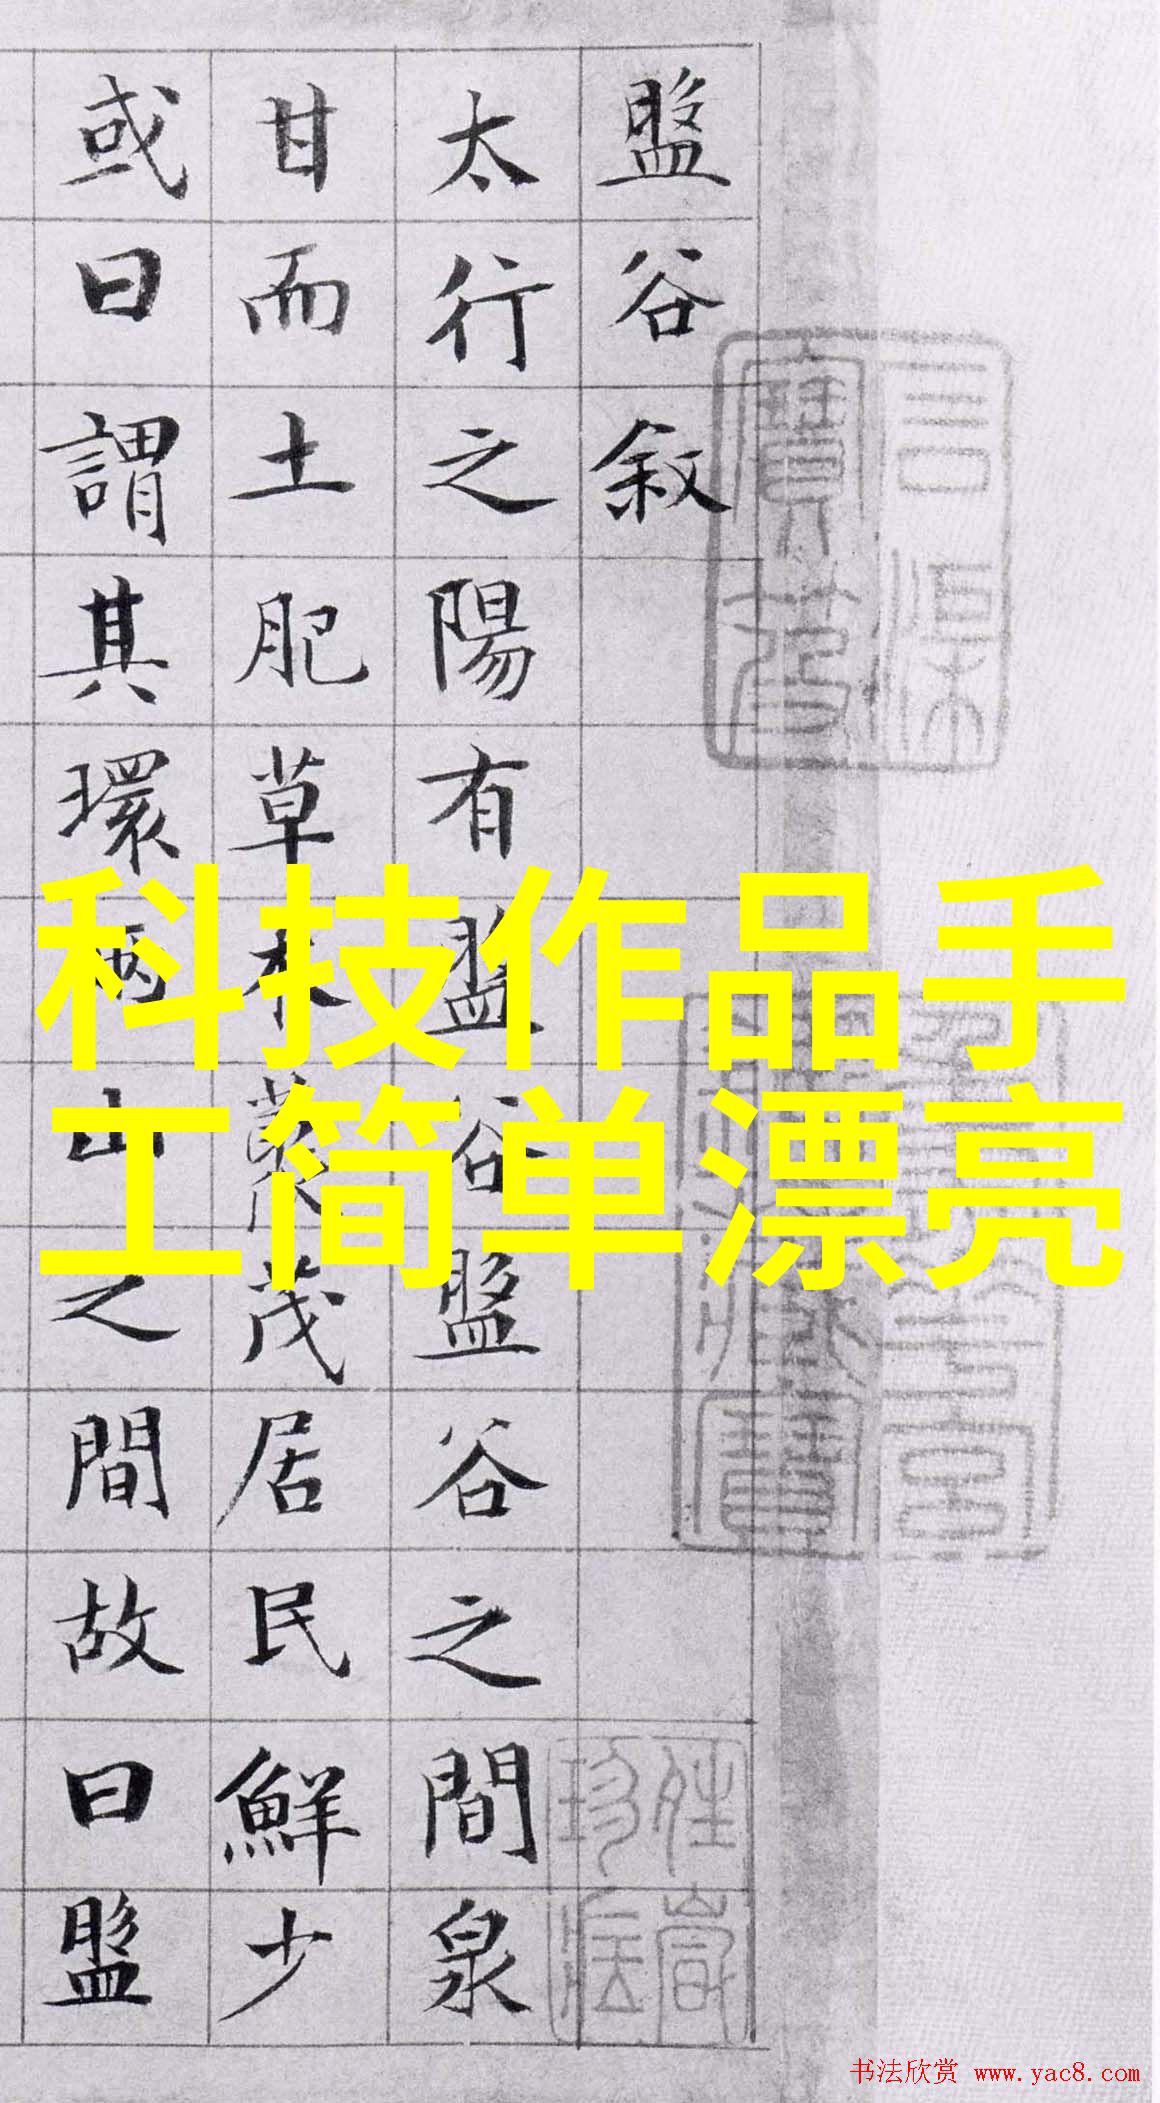 盤谷敘
太行之陽有盤谷盤谷之間泉
甘而土肥草木藂茂居民鮮少
或曰謂其環兩山之間故曰盤
科技作品手
工简单漂亮
书法欣赏 www.yac8.com